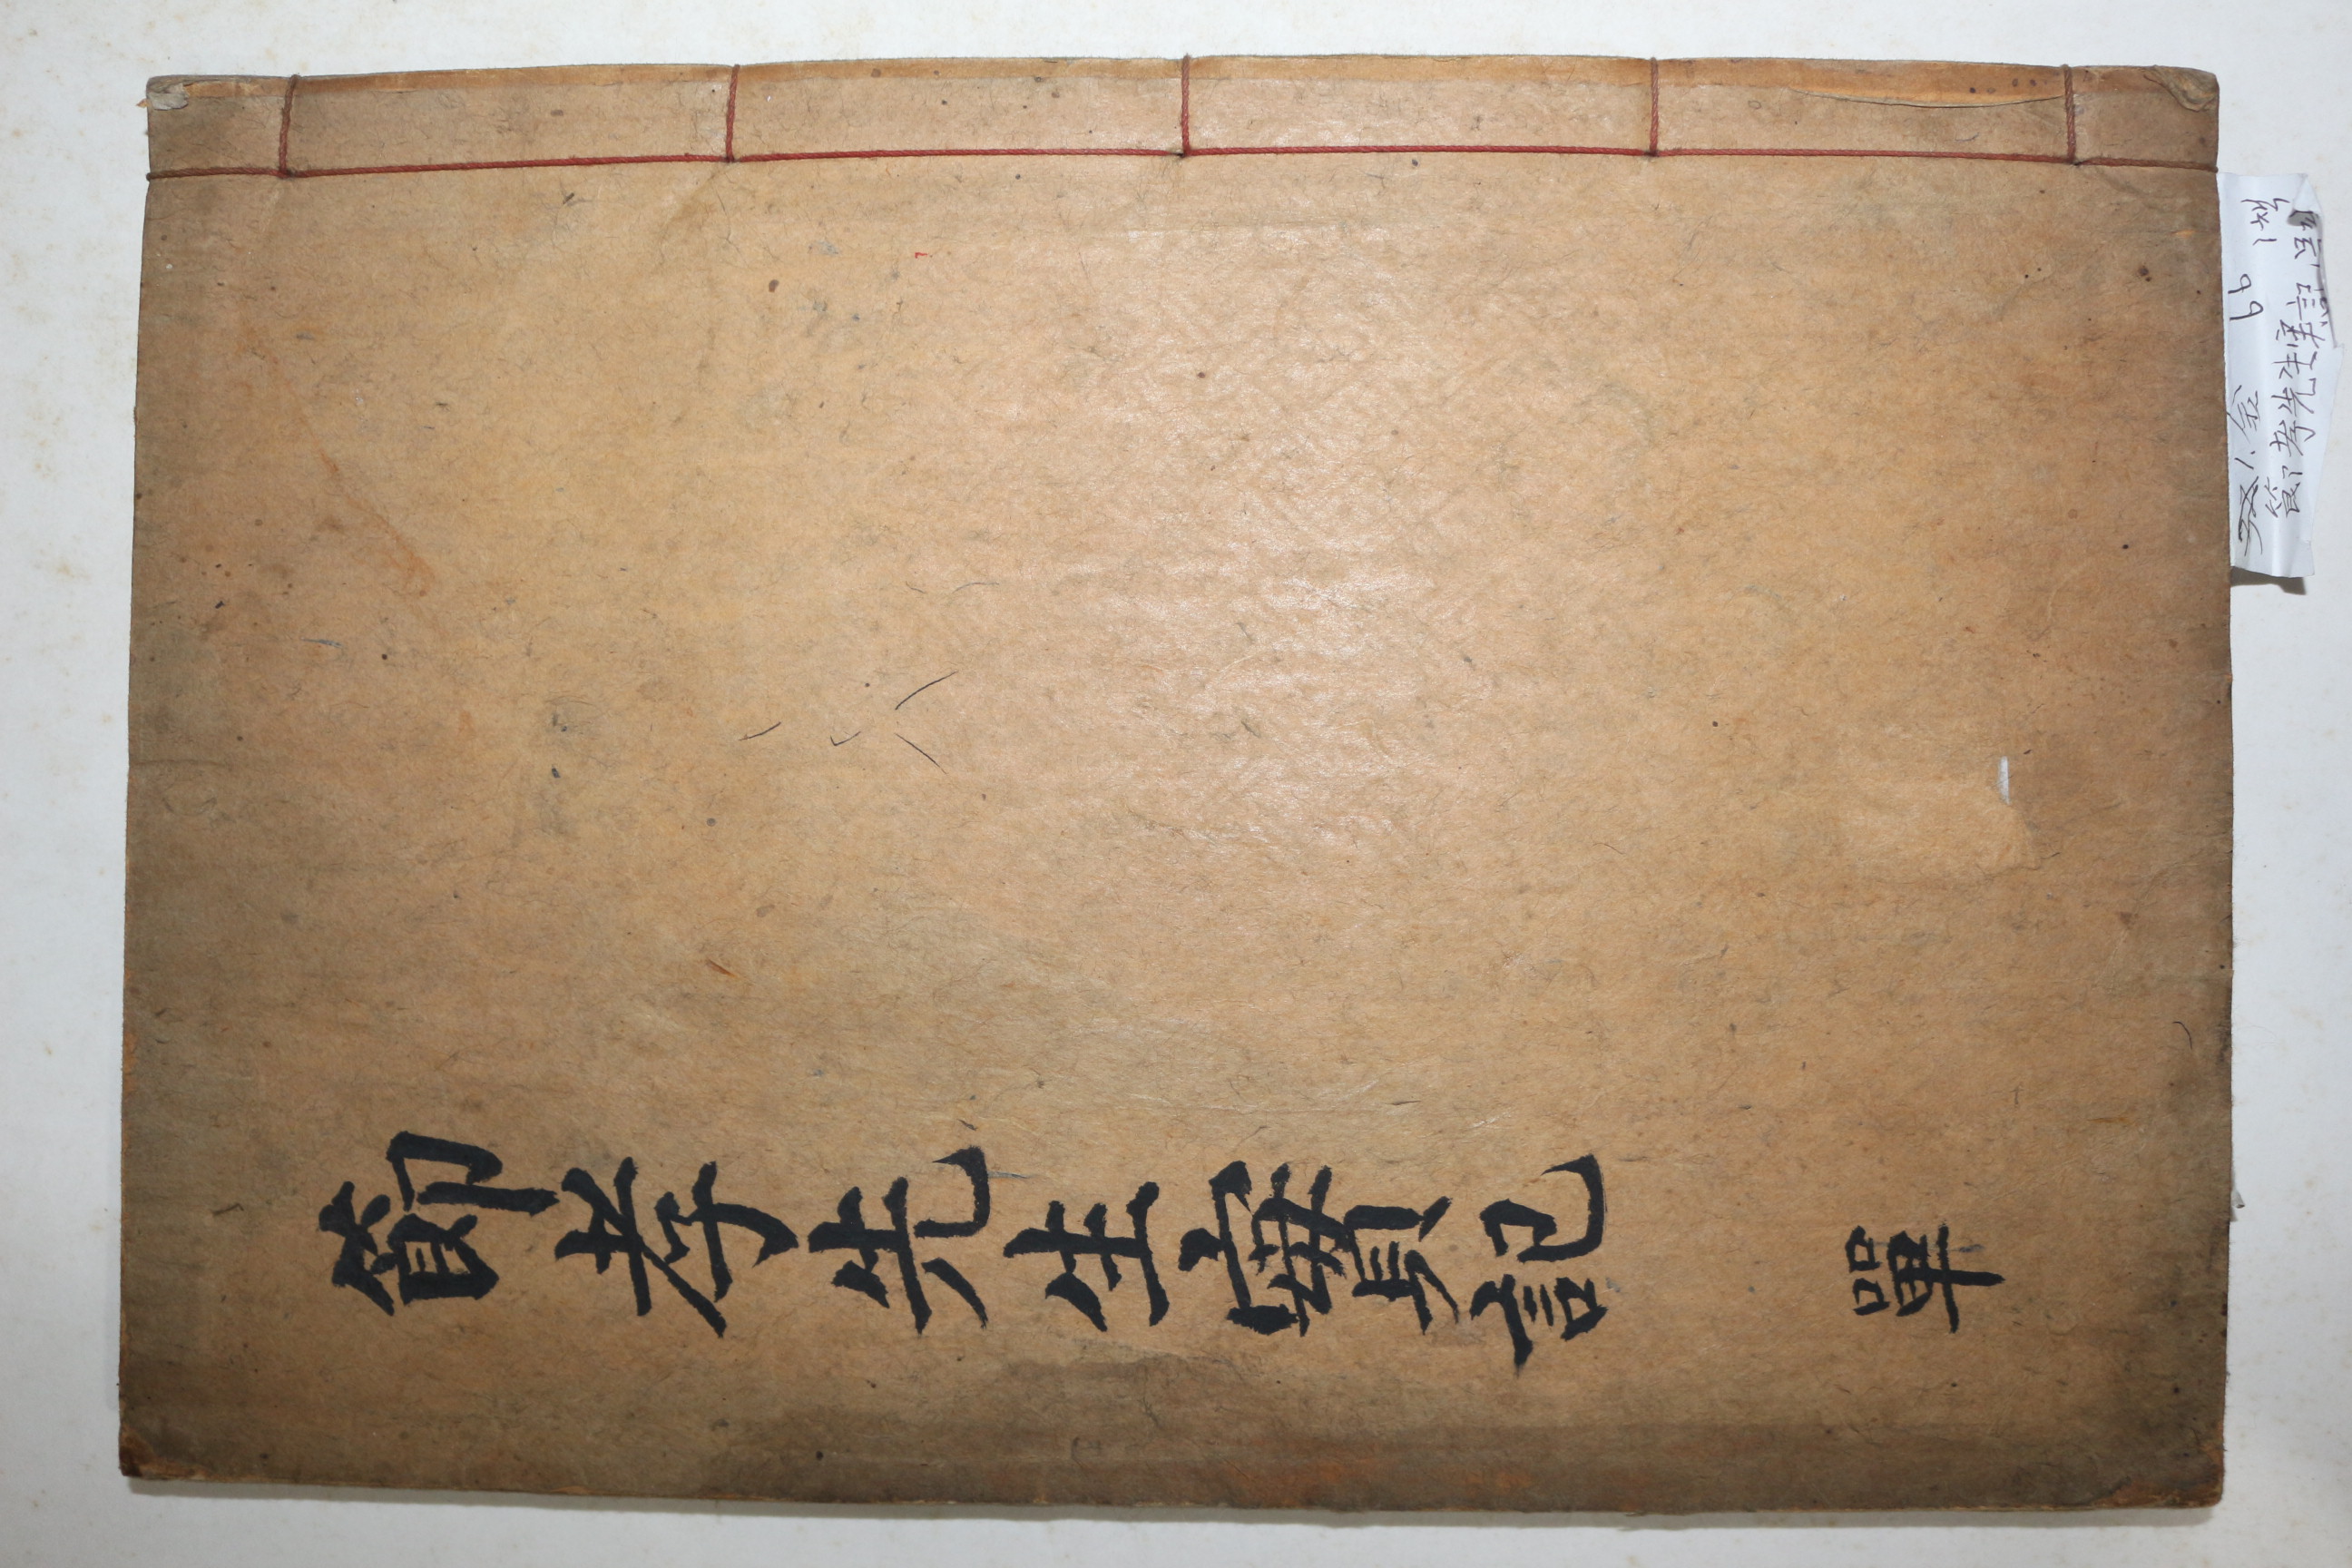 節孝先生實記
單
1. 金 66
1책
節孝先生実記